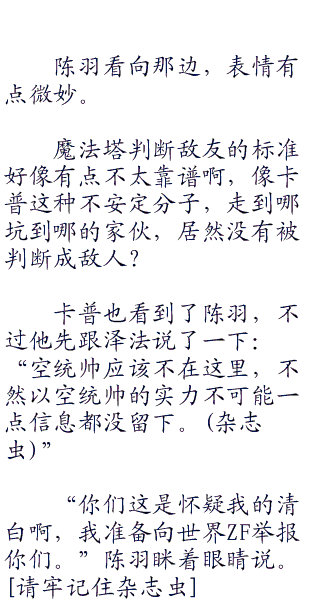 陈羽看向那边，表情有
点微妙。
魔法塔判断敌友的标准
好像有点不太靠谱啊，像卡
普这种不安定分子，走到哪
坑到哪的家伙，居然没有被
判断成敌人？
卡普也看到了陈羽，不
过他先跟泽法说了一下：
“空统帅应该不在这里，不
然以空统帅的实力不可能一
点信息都没留下。(杂志
虫)”
“你们这是怀疑我的清
白啊，我准备向世界ZF举报
你们。”陈羽眯着眼睛说。
[请牢记住杂志虫]